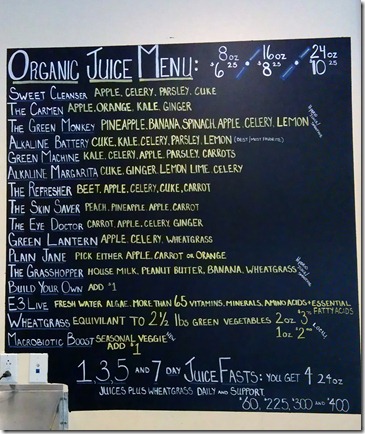 ORGANIC JUICE MENU: 8oz $6 25 16oz $8 25 24oz 10 25
SWEET CLEANSER APPLE, CELERY, PARSLEY, CUKE
THE CARMEN APPLE, ORANGE, KALE, GINGER
THE GREEN MONKEY PINEAPPLE, BANANA, SPINACH, APPLE, CELERY, LEMON
ALKALINE BATTERY CUKE, KALE, CELERY, PARSLEY, LEMON (BEST/MOST FAVORITE)
GREEN MACHINE KALE, CELERY, APPLE, PARSLEY, CARROTS
ALKALINE MARGARITA CUKE, GINGER, LEMON LIME, CELERY
THE REFRESHER BEET, APPLE, CELERY, CUKE, CARROT
THE SKIN SAVER PEACH, PINEAPPLE, APPLE, CARROT
THE EYE DOCTOR CARROT, APPLE, CELERY, GINGER
GREEN LANTERN APPLE, CELERY, WHEATGRASS
PLAIN JANE PICK EITHER APPLE, CARROT OR ORANGE
THE GRASSHOPPER HOUSE MILK, PEANUT BUTTER, BANANA, WHEATGRASS
BUILD YOUR OWN ADD $1
E3 LIVE FRESH WATER ALGAE. MORE THAN 65 VITAMINS, MINERALS, AMINO ACIDS + ESSENTIAL
FATTY ACIDS
WHEATGRASS EQUIVILANT TO 2 1/2 lbs GREEN VEGETABLES 2oz $3
1oz $2
MACROBIOTIC BOOST SEASONAL VEGGIE
ADD $1
1, 3, 5 AND 7 DAY JUICE FASTS: YOU GET 4 24oz
JUICES PLUS WHEATGRASS DAILY AND SUPPORT
$60, $225, $300 AND $400